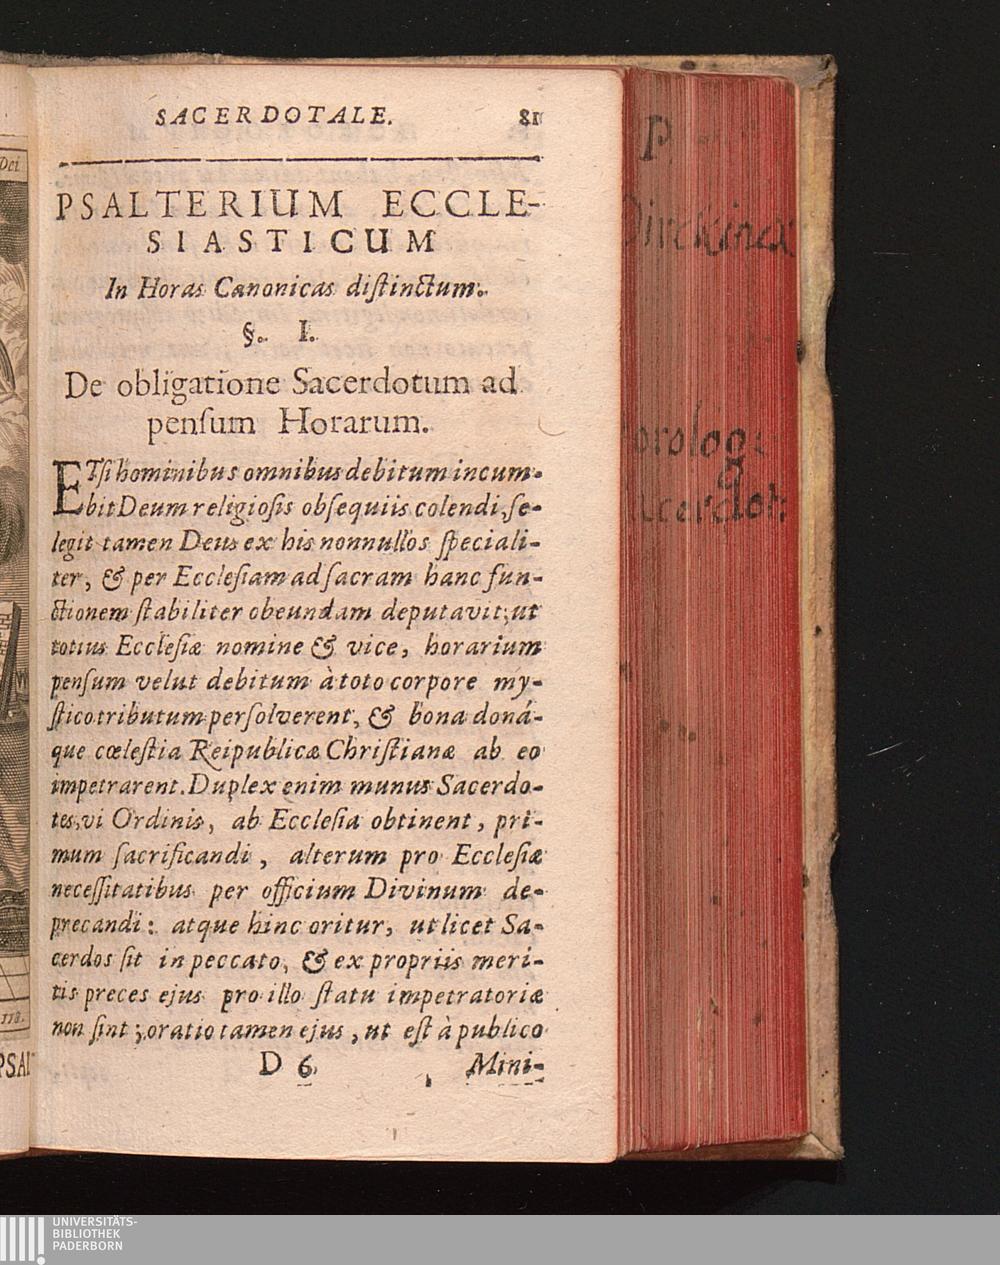 SACERDOTALE. 81
PSALTERIUM ECCLE-
SIASTICUM
In Horas Canonicas diſtinctum.
§. I.
De obligatione Sacerdotum ad
penſum Horarum.
ETſi hominibus omnibus debitum incum-
bit Deum religioſis obſequiis colendi, ſe-
legit tamen Deus ex his nonnullos ſpeciali-
ter, & per Eccleſiam ad ſacram hanc fun-
ctionem ſtabiliter obeundam deputavit; ut
totius Eccleſiæ nomine & vice, horarium
penſum velut debitum à toto corpore my-
ſtico tributum perſolverent, & bona doná-
que cœleſtia Reipublicæ Chriſtianæ ab eo
impetrarent. Duplex enim munus Sacerdo-
tes, vi Ordinis, ab Eccleſia obtinent, pri-
mum ſacrificandi, alterum pro Eccleſiæ
neceſſitatibus per officium Divinum de-
precandi: atque hinc oritur, ut licet Sa-
cerdos ſit in peccato, & ex propriis meri-
tis preces ejus pro illo ſtatu impetratoriæ
non ſint; oratio tamen ejus, ut eſt à publico
D 6 Mini-
P.
orolog:
acerdot:
Dei
PSAL
UNIVERSITÄTS-
BIBLIOTHEK
PADERBORN